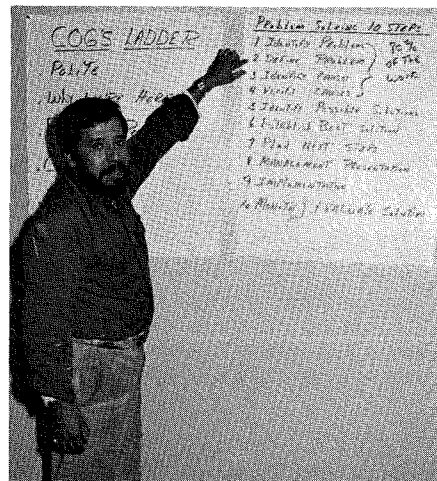 COG'S LADDER
Polite
Why We're Here
Problem Solving 10 STEPS
1 Identify Problem
2 Define Problem
3 Identify Causes
4 Verify Causes
90%
OF THE
WORK
5 Identify Possible Solutions
6 Establish Best Solution
7 Plan NEXT STEPS
8 MANAGEMENT Presentation
9 IMPLEMENTATION
10 Monitor / EVALUATE Solution